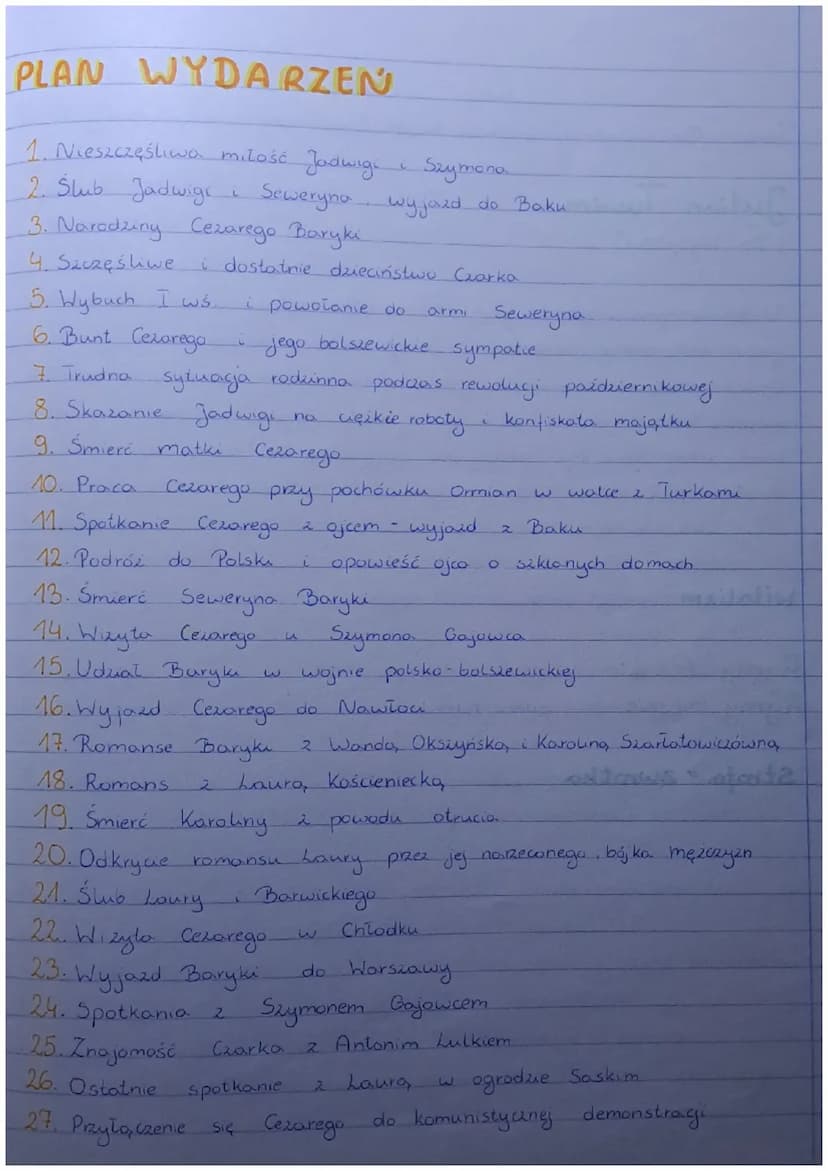 PLAN WYDARZEŃ
1. Nieszczęśliwa miłość Jadwigi i Szymona
2. Ślub Jadwigi i Seweryna, wyjazd do Baku
3. Narodziny Cezarego Baryki
4. Szczęśliwe i dostatnie dzieciństwo Czarka
5. Wybuch I wś. i powołanie do armi Seweryna
6. Bunt Cezarego i jego bolszewickie sympatie
7. Trudna sytuacja rodzinna podczas rewolucji październikowej
8. Skazanie Jadwigi na ciężkie roboty i konfiskata majątku
9. Śmierć matki Cezarego
10. Praca Cezarego przy pochówku Ormian w walce z Turkami
11. Spotkanie Cezarego z ojcem - wyjazd z Baku
12. Podróż do Polski i opowieść ojca o szklanych domach
13. Śmierć Seweryna Baryki
14. Wizyta Cezarego u Szymona Gajowca
15. Udział Baryki w wojnie polsko-bolszewickiej
16. Wyjazd Cezarego do Nawłoci
17. Romanse Baryki z Wandą Okszyńską i Karoliną Szarłatowiczówną
18. Romans z Laurą Kościeniecką
19. Śmierć Karoliny z powodu otrucia
20. Odkrycie romansu Laury przez jej narzeczonego, bójka mężczyzn
21. Ślub Laury i Barwickiego
22. Wizyta Cezarego w Chłodku
23. Wyjazd Baryki do Warszawy
24. Spotkania z Szymonem Gajowcem
25. Znajomość Czarka z Antonim Lulkiem
26. Ostatnie spotkanie z Laurą w ogrodzie Saskim
27. Przyłączenie się Cezarego do komunistycznej demonstracji